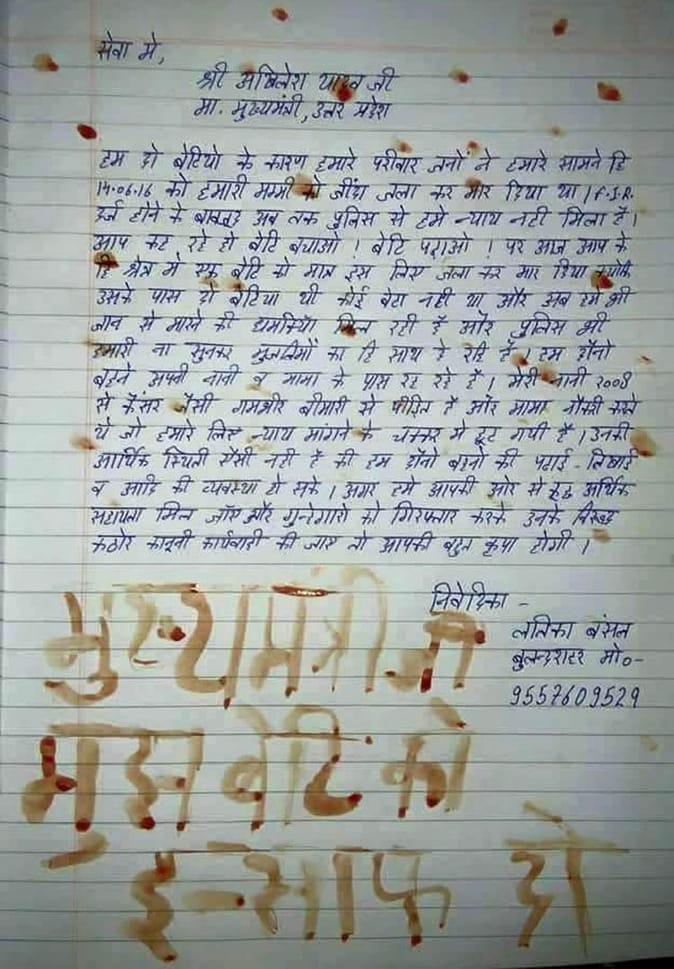 सेवा मे,
श्री अखिलेश यादव जी
मा. मुख्यमंत्री, उत्तर प्रदेश
हम दो बेटियो के कारण हमारे परीवार जनों ने हमारे सामने हि
14.06.16 को हमारी मम्मी को जींदा जला कर मार दिया था। F.I.R.
दर्ज होने के बावजूद अब तक पुलिस से हमे न्याय नही मिला है।
आप कह रहे हो बेटि बचाओ! बेटि पढ़ाओ! पर आज आप के
हि क्षेत्र मे एक बेटि को मात्र इस लिए जला कर मार दिया क्योकि
उसके पास दो बेटिया थी कोई बेटा नही था और अब हमे भी
जान से मारने की धमकियाँ मिल रही है और पुलिस भी
हमारी ना सुनकर मुजलिमों का हि साथ दे रहि है। हम दोनो
बहने अपनी नानी व मामा के पास रह रहे है। मेरी नानी 2008
से कैंसर जैसी गमभीर बीमारी से पीड़ित है और मामा नौकरी करते
थे जो हमारे लिए न्याय मांगने के चक्कर मे छूट गयी है। उनकी
आर्थिक स्थिती ऐसी नही है की हम दोनो बहनो की पढाई-लिखाई
व आदि की व्यवस्था हो सके। अगर हमे आपकी ओर से कुछ आर्थिक
सहायता मिल जाए और गुनेगारो को गिरफ्तार करके उनके विरूद्ध
कठोर कानूनी कार्यवाही की जाए तो आपकी बहुत कृपा होगी।
निवेदिका -
लतिका बंसल
बुलन्दशहर मो०-
9557609529
मुख्यमंत्री जी
मुझ बेटि को
इन्साफ दो